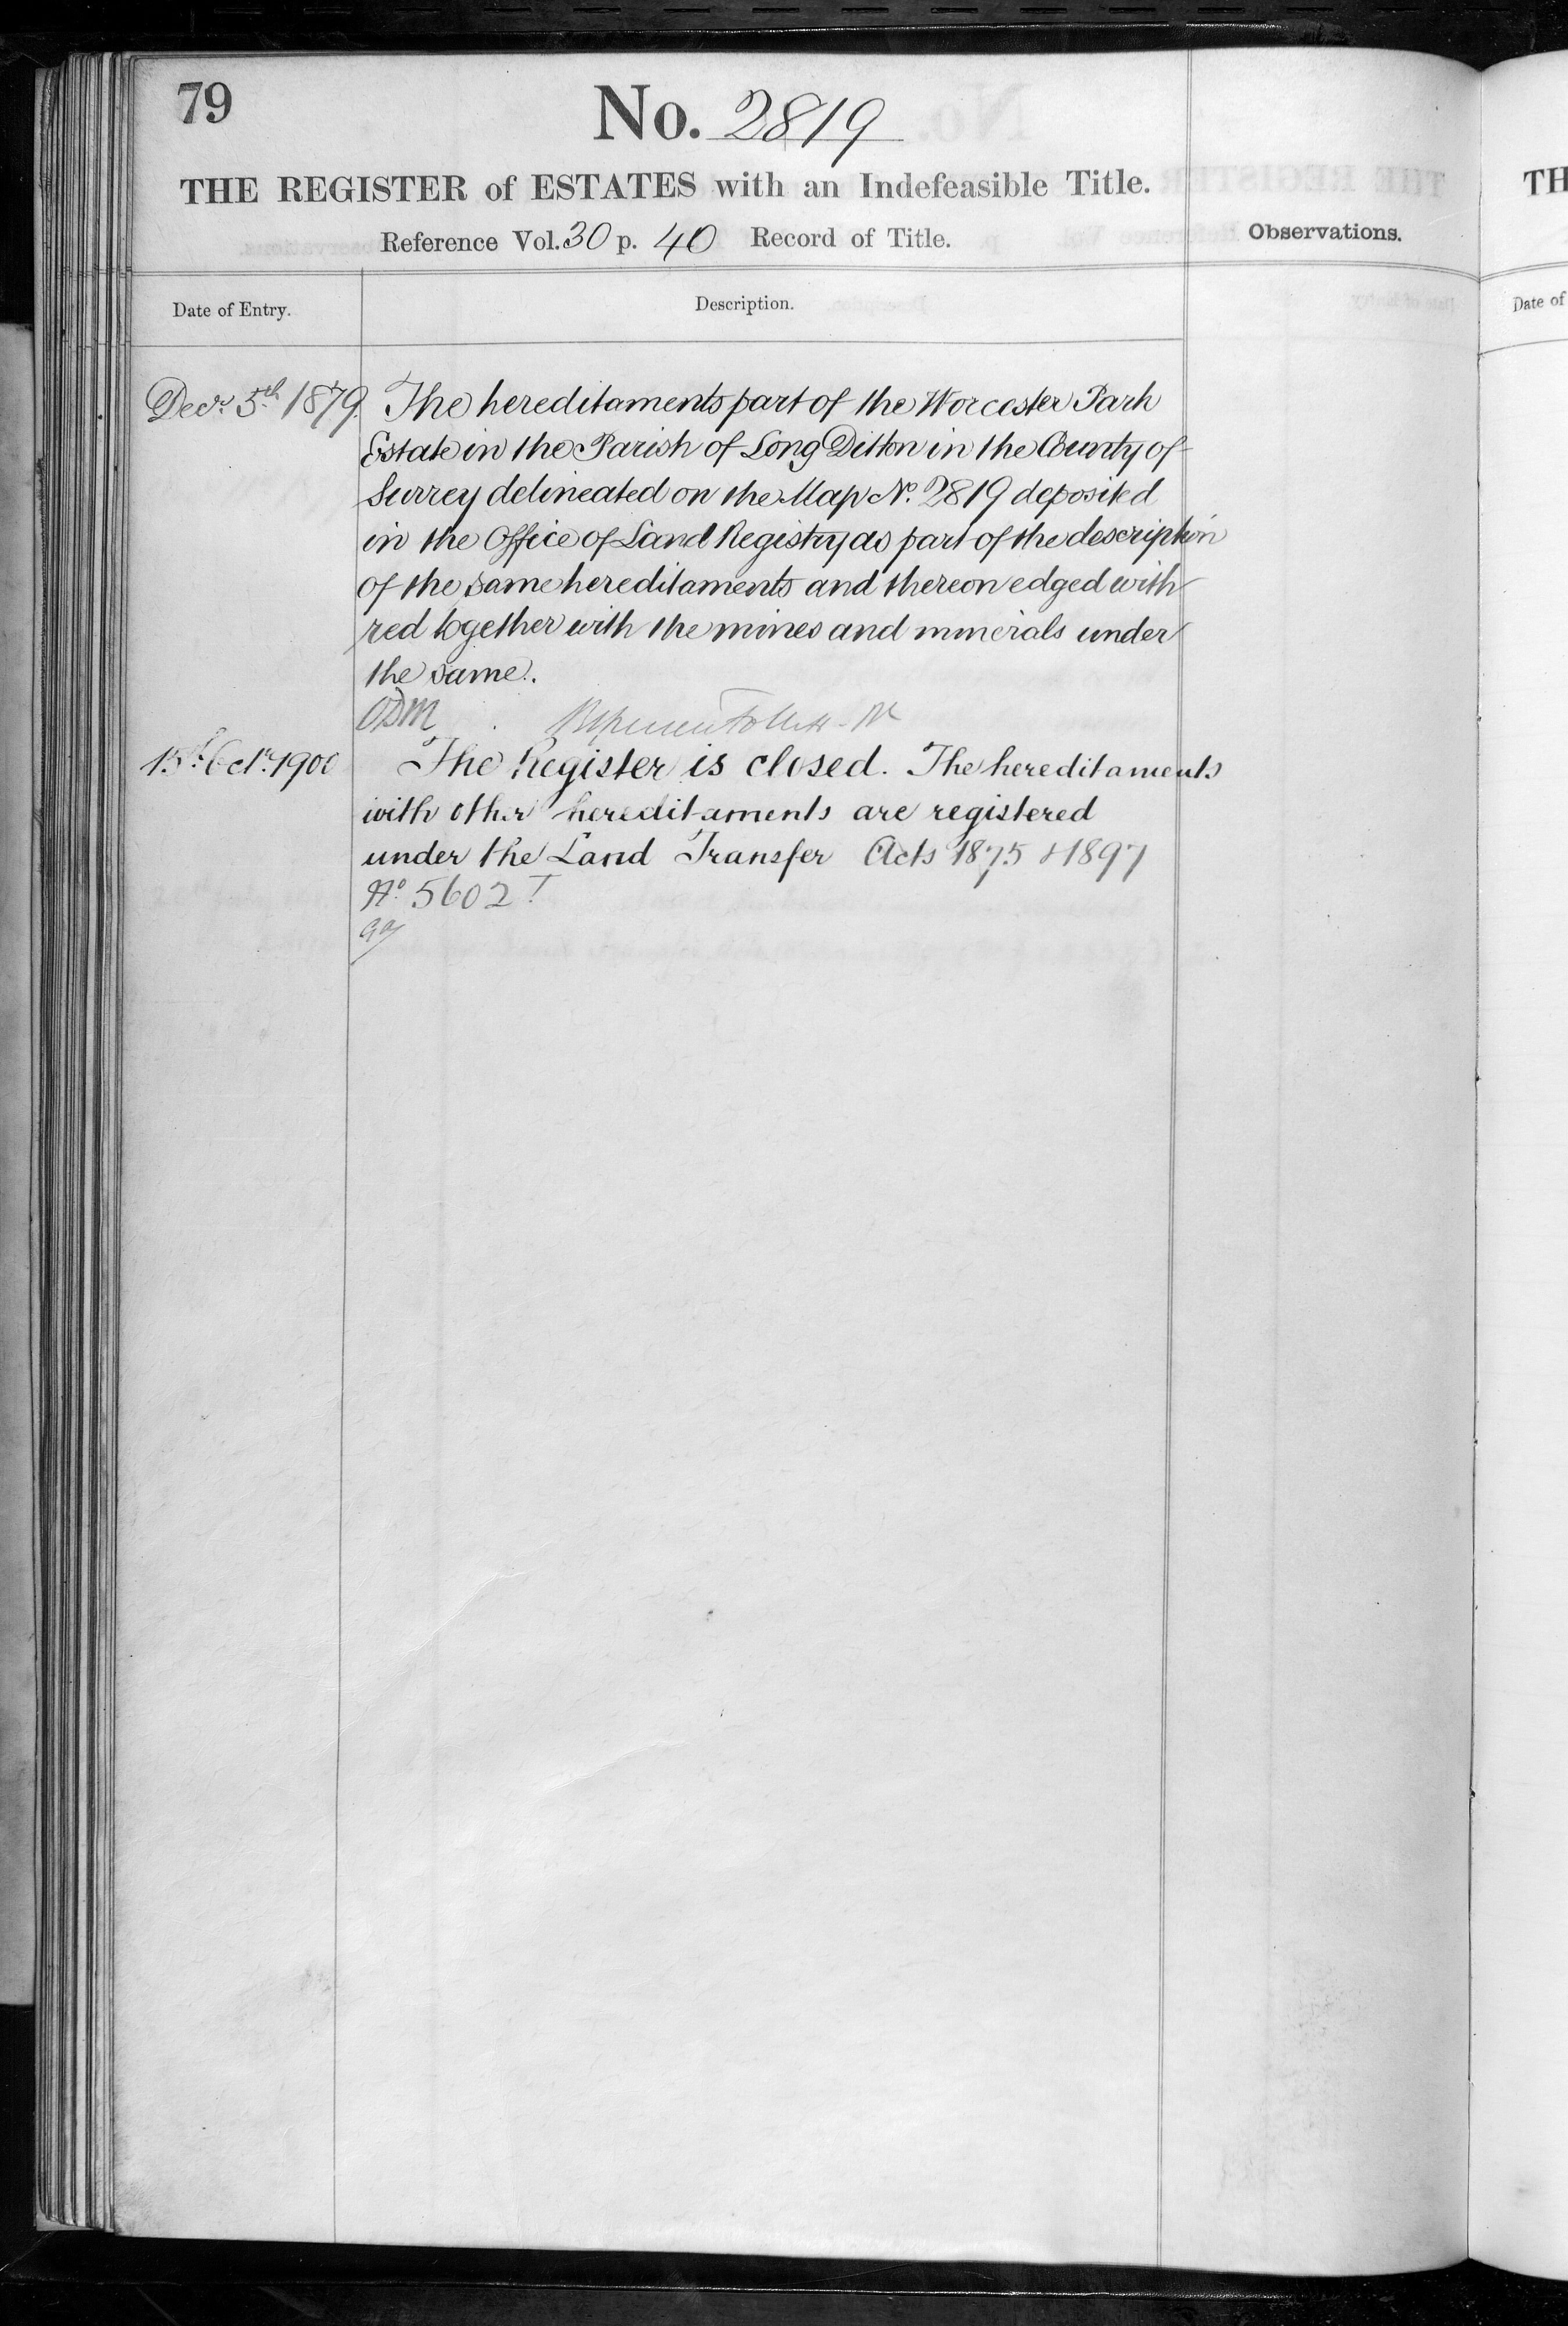 79
No. 2819
THE REGISTER of ESTATES with an Indefeasible Title.
Reference Vol. 30 p. 40 Record of Title.
Observations.
Date of Entry.
Description.
Decr. 5th 1879. The hereditaments part of the Worcester Park
Estate in the Parish of Long Ditton in the County of
Surrey delineated on the Map No. 2819 deposited
in the Office of Land Registry as part of the description
of the same hereditaments and thereon edged with
red together with the mines and minerals under
the same.
15th Octr. 1900 The Register is closed. The hereditaments
with other hereditaments are registered
under the Land Transfer Acts 1875 & 1897
No. 5602
TH
Date of